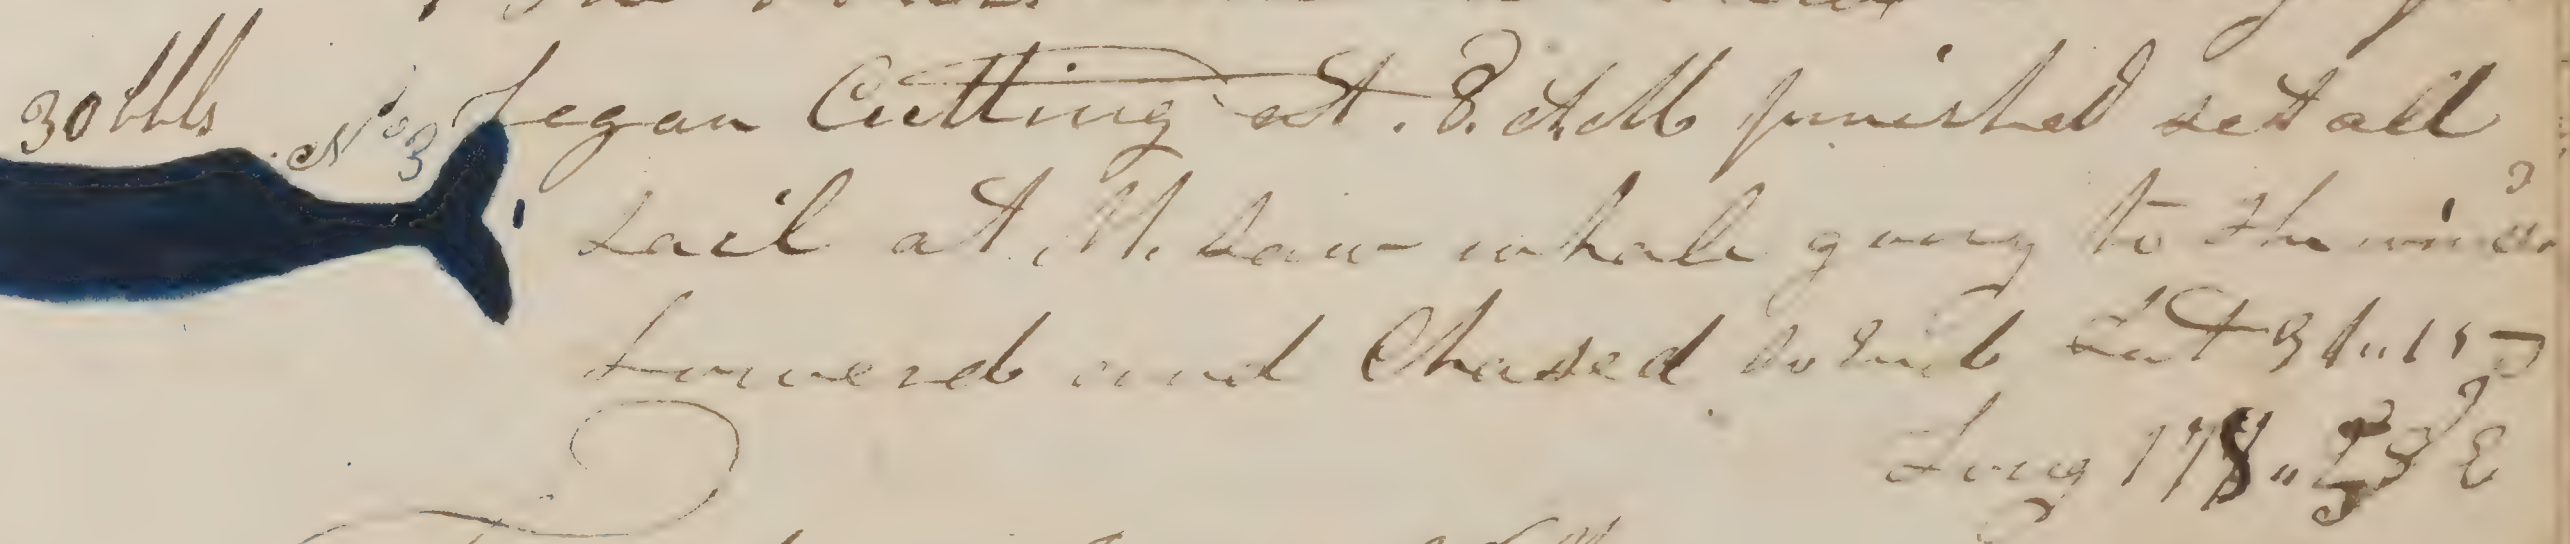 30 bbls
No 3
began Cutting at . 8. A.M finished set all
Sail at M. Saw whale going to the wind
Lowered and Chased Lat 31"15
Long 178" E